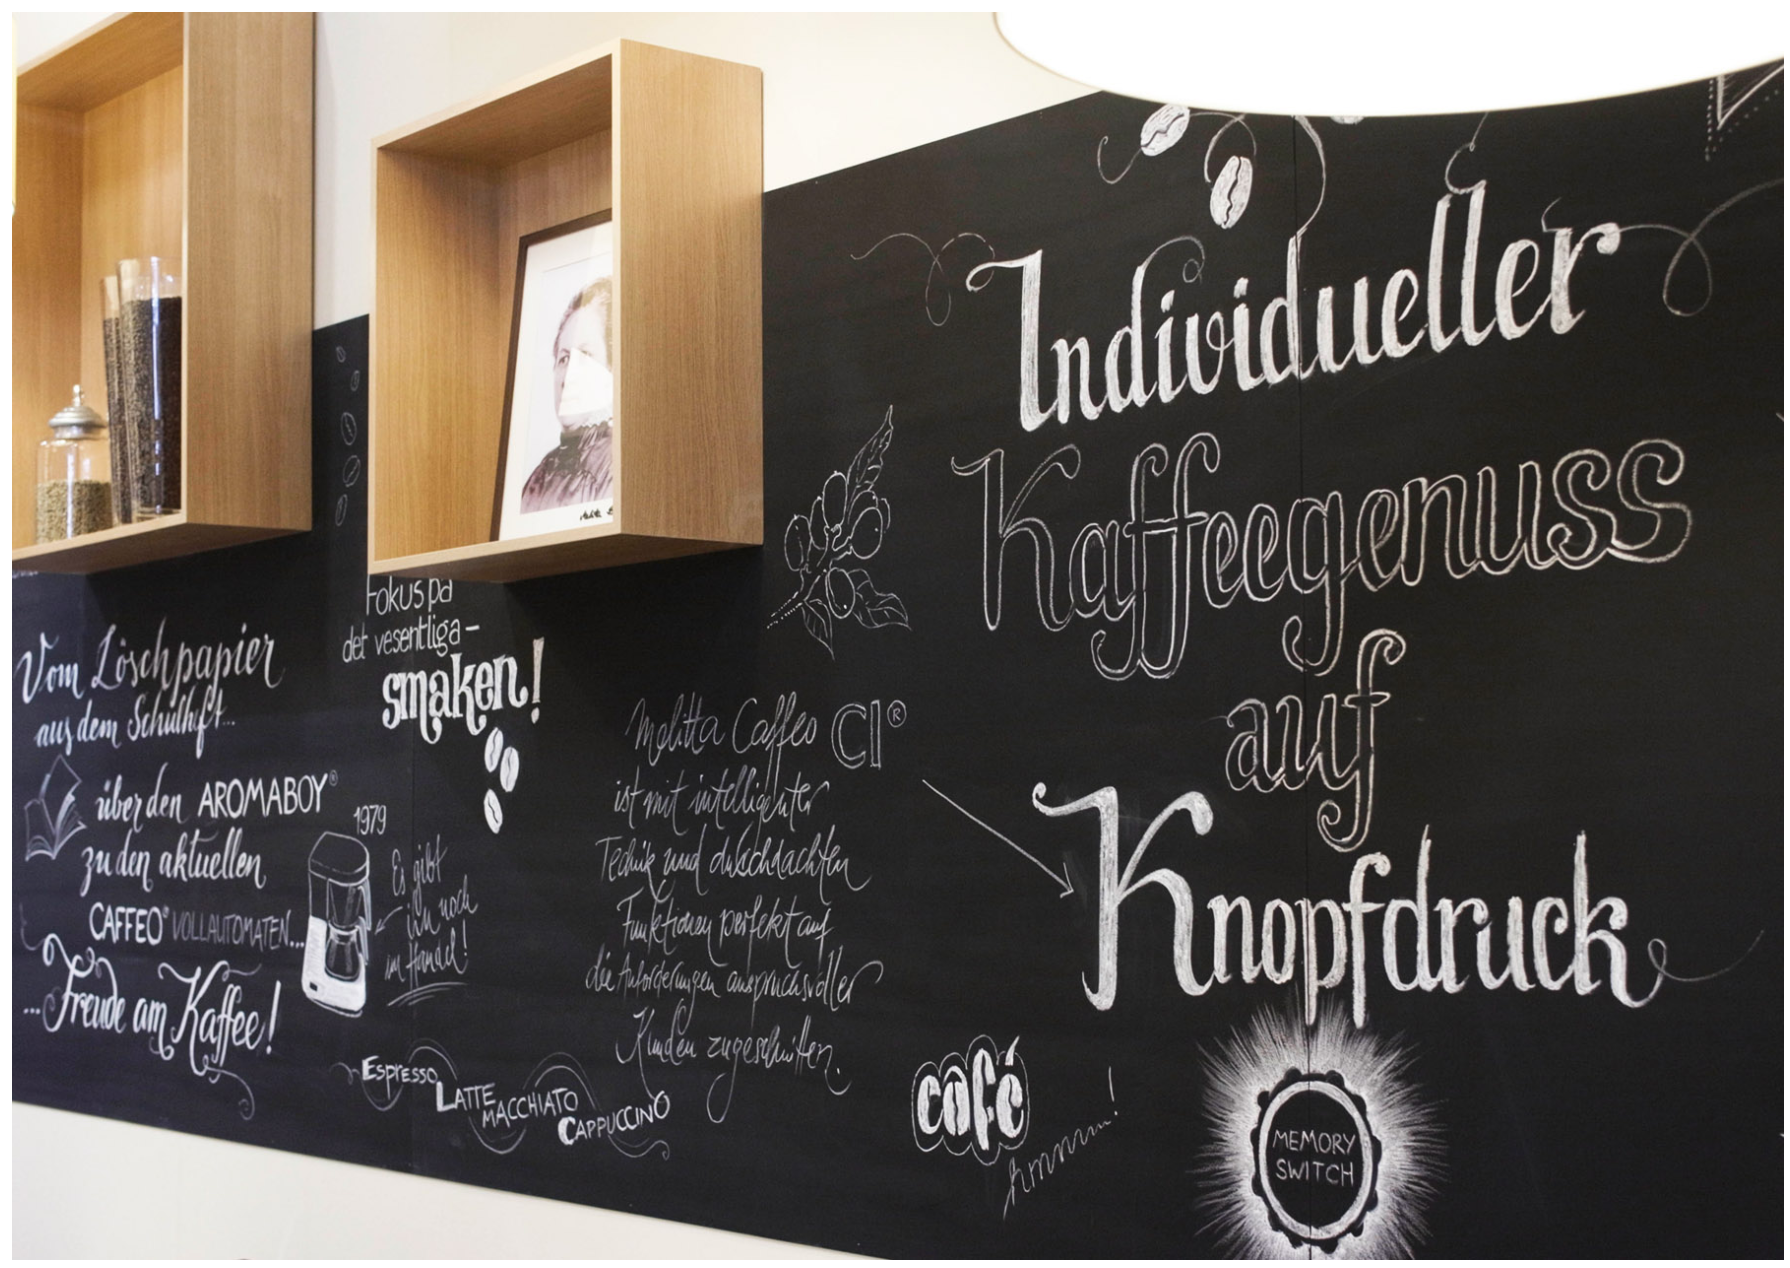 Vom Löschpapier
aus dem Schulheft...
über den AROMABOY®
zu den aktuellen
CAFFEO® VOLLAUTOMATEN...
...Freude am Kaffee!
1979
Es gibt
ihn noch
im Handel!
Fokus på
det vesentliga –
smaken!
Espresso
LATTE
MACCHIATO
CAPPUCCINO
Melitta Caffeo CI®
ist mit intelligenter
Technik und durchdachten
Funktionen perfekt auf
die Anforderungen anspruchsvoller
Kunden zugeschnitten.
café
hmmm!
Individueller
Kaffeegenuss
auf
Knopfdruck
MEMORY
SWITCH